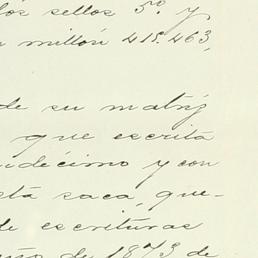 los sellos 5º. y
millón 415.463,
de su matriz
que escrita
y con
esta saca, que-
de escrituras
de 1873 de